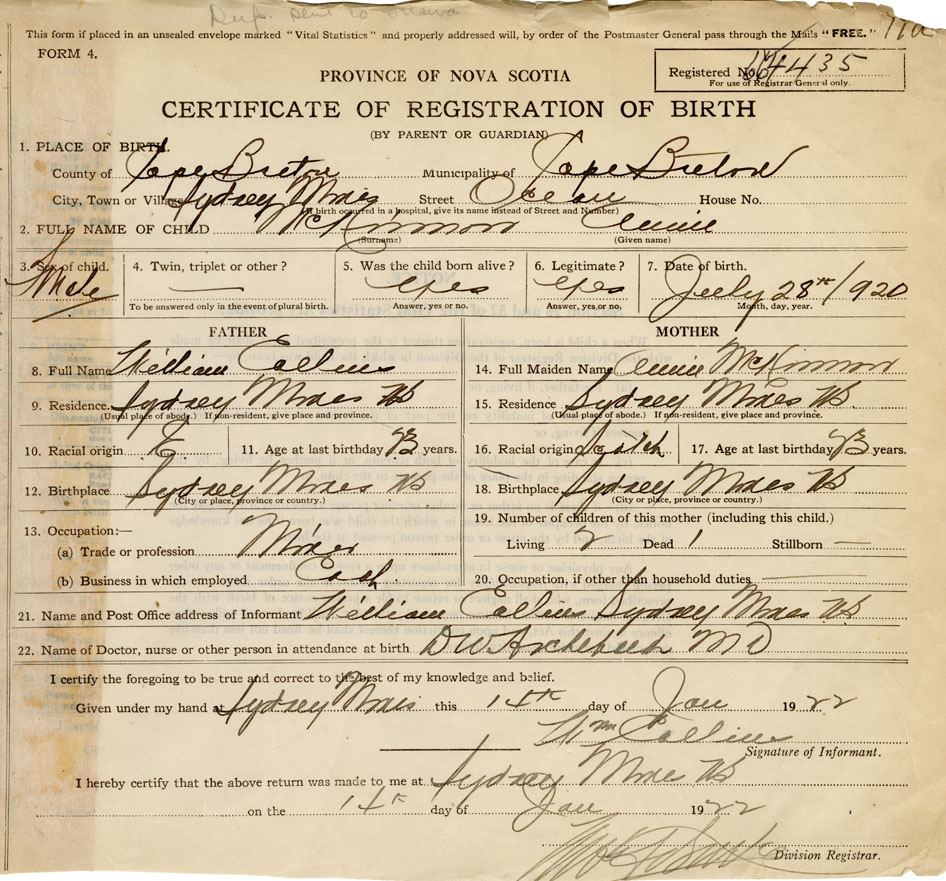 Dups. sent to Ottawa
This form if placed in an unsealed envelope marked "Vital Statistics" and properly addressed will, by order of the Postmaster General pass through the Mails "FREE."
FORM 4.
PROVINCE OF NOVA SCOTIA
Registered No. 435
For use of Registrar General only.
CERTIFICATE OF REGISTRATION OF BIRTH
(BY PARENT OR GUARDIAN)
1. PLACE OF BIRTH.
County of Cape Breton Municipality of Cape Breton
City, Town or Village Sydney Mines Street Ocean House No.
(If birth occurred in a hospital, give its name instead of Street and Number)
2. FULL NAME OF CHILD McKinnon Annie
(Surname) (Given name)
3. Sex of child. 4. Twin, triplet or other? 5. Was the child born alive? 6. Legitimate? 7. Date of birth.
Male — Yes Yes July 28th 1920
To be answered only in the event of plural birth. Answer, yes or no. Answer, yes or no. Month, day, year.
FATHER MOTHER
8. Full Name William Collins 14. Full Maiden Name Annie McKinnon
9. Residence. Sydney Mines NS 15. Residence Sydney Mines NS
(Usual place of abode.) If non-resident, give place and province. (Usual place of abode.) If non-resident, give place and province.
10. Racial origin E. 11. Age at last birthday 23 years. 16. Racial origin Scotch 17. Age at last birthday 23 years.
12. Birthplace Sydney Mines NS 18. Birthplace Sydney Mines NS
(City or place, province or country.) (City or place, province or country.)
13. Occupation:— 19. Number of children of this mother (including this child.)
(a) Trade or profession Miner Living 2 Dead 1 Stillborn —
(b) Business in which employed Coal 20. Occupation, if other than household duties —
21. Name and Post Office address of Informant William Collins Sydney Mines NS
22. Name of Doctor, nurse or other person in attendance at birth D W Archibald M D
I certify the foregoing to be true and correct to the best of my knowledge and belief.
Given under my hand at Sydney Mines this 14th day of Jan 1922
Wm Collins
Signature of Informant.
I hereby certify that the above return was made to me at Sydney Mines NS
on the 14th day of Jan 1922
Division Registrar.